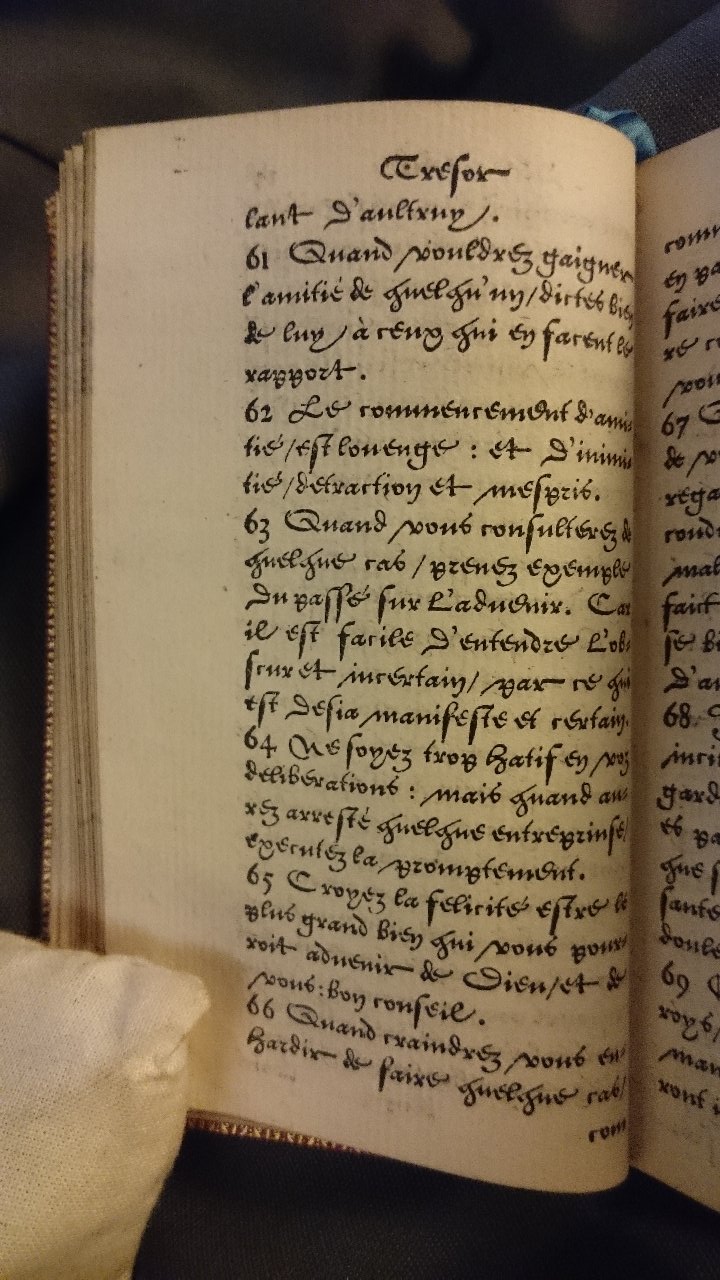 Tresor
lant d'aultruy.
61 Quand vouldrez gaigner
l'amitié de quelqu'un/dictes bien
de luy/à ceux qui en facent le
rapport.
62 Le commencement d'ami-
tié/est louenge : et d'inimi-
tié/detraction et mespris.
63 Quand vous consulterez de
quelque cas/prenez exemple
du passé sur l'advenir. Car
il est facile d'entendre l'ob-
scur et incertain/par ce qui
est desia manifeste et certain.
64 Ne soyez trop hatif en voz
deliberations : mais quand au-
rez arresté quelque entreprinse/
executez la promptement.
65 Croyez la felicité estre le
plus grand bien qui vous pour-
roit advenir de Dieu/et de
vous:bon conseil.
66 Quand craindrez vous en-
hardir de faire quelque cas/
com
comm
en pa
faire
re co
vou
67
de v
rega
cond
mal
faict
se bi
d'au
68
inci
gard
es pa
que s
sante
doule
69
roys/
man
ront i